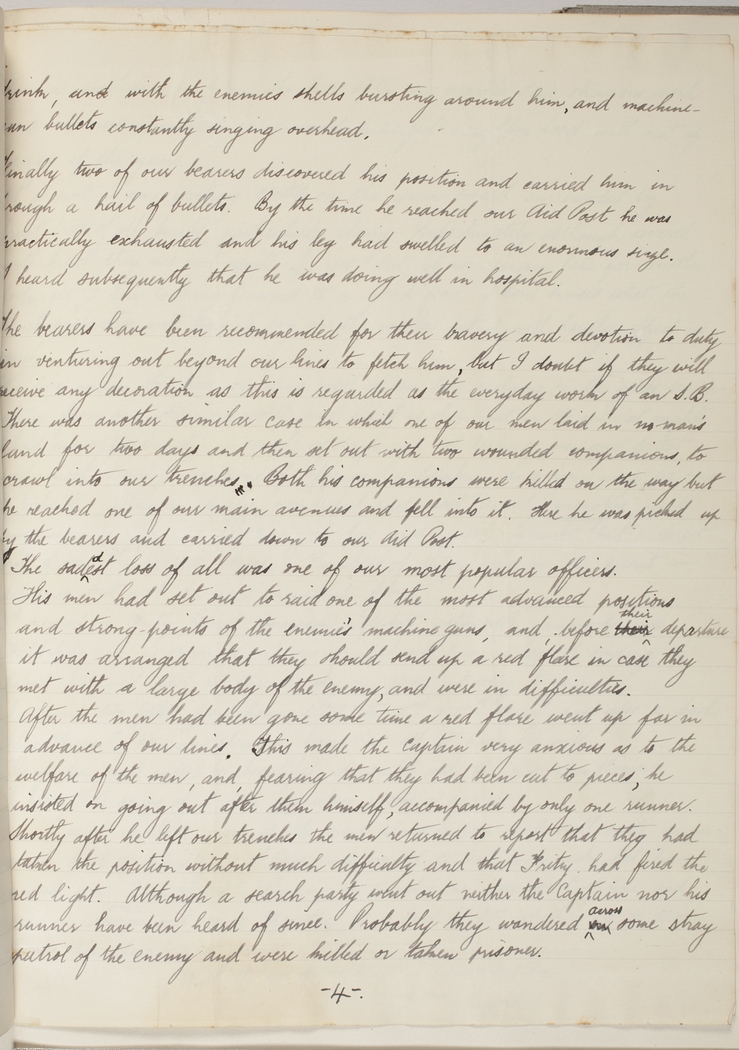 drink, and with the enemies shells bursting around him, and machine-
gun bullets constantly singing overhead.
Finally two of our bearers discovered his position and carried him in
through a hail of bullets. By the time he reached our Aid Post he was
practically exhausted and his leg had swelled to an enormous size.
I heard subsequently that he was doing well in hospital.
The bearers have been recommended for their bravery and devotion to duty
in venturing out beyond our lines to fetch him, but I doubt if they will
receive any decoration as this is regarded as the everyday work of an S.B.
There was another similar case in which one of our men laid in no-man's
land for two days and then set out with two wounded companions, to
crawl into our trenches. Both his companions were killed on the way but
he reached one of our main avenues and fell into it. Here he was picked up
by the bearers and carried down to our Aid Post.
The saddest loss of all was one of our most popular officers.
His men had set out to raid one of the most advanced positions
and strong-points of the enemie's machine guns, and before their departure
it was arranged that they should send up a red flare in case they
met with a large body of the enemy, and were in difficulties.
After the men had been gone some time a red flare went up far in
advance of our lines. This made the captain very anxious as to the
welfare of the men, and, fearing that they had been cut to pieces, he
insisted on going out after them himself, accompanied by only one runner.
Shortly after he left our trenches the men returned to report that they had
taken the position without much difficulty and that Fritz had fired the
red light. Although a search party went out neither the Captain nor his
runner have been heard of since. Probably they wandered across some stray
patrol of the enemy and were killed or taken prisoner.
-4-.